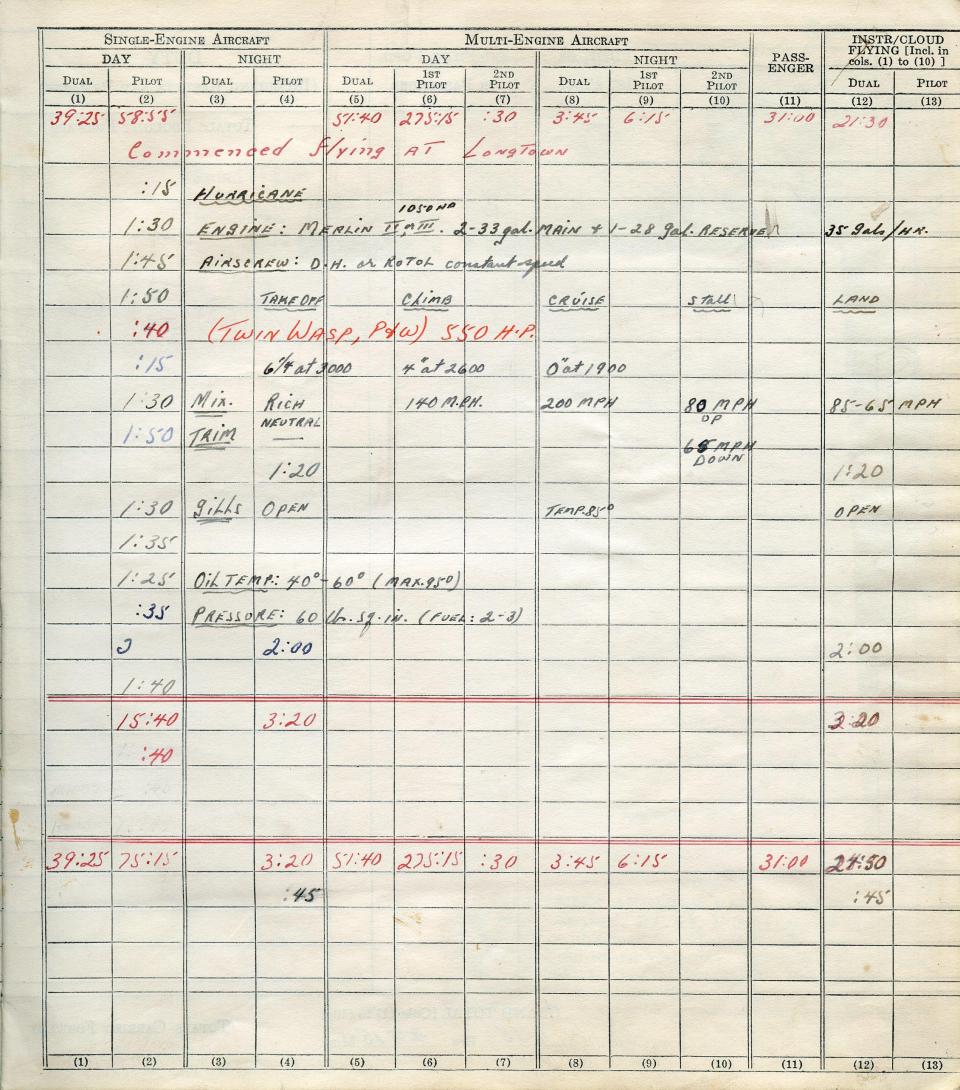 SINGLE-ENGINE AIRCRAFT MULTI-ENGINE AIRCRAFT PASS-ENGER INSTR/CLOUD FLYING [Incl. in cols. (1) to (10) ]
DAY NIGHT DAY NIGHT
DUAL PILOT DUAL PILOT DUAL 1ST PILOT 2ND PILOT DUAL 1ST PILOT 2ND PILOT DUAL PILOT
(1) (2) (3) (4) (5) (6) (7) (8) (9) (10) (11) (12) (13)
39:25 58:55 57:40 275:15 :30 3:45 6:15 31:00 21:30
Commenced flying AT LONGTOWN
:15 HURRICANE
1050 HP
1:30 ENGINE: MERLIN II or III. 2-33 gal. MAIN + 1-28 gal. RESERVE 35 gals/HR.
1:45 AIRSCREW: D.H. or ROTOL constant-speed
1:50 TAKE OFF CLIMB CRUISE Stall LAND
:40 (TWIN WASP, P&W) 550 H.P.
:15 6¼ at 3000 4" at 2600 0" at 1900
1:30 MIX. RICH 140 M.P.H. 200 MPH 80 MPH UP 85-65 MPH
1:50 TRIM NEUTRAL 65 MPH DOWN
1:20 1:20
1:30 gills OPEN TEMP. 85° OPEN
1:35
1:25 OIL TEMP: 40°-60° (MAX. 95°)
:35 PRESSURE: 60 lb. sq. in. (FUEL: 2-3)
2:00 2:00
1:40
15:40 3:20 3:20
:40
39:25 75:15 3:20 57:40 275:15 :30 3:45 6:15 31:00 24:50
:45 :45
(1) (2) (3) (4) (5) (6) (7) (8) (9) (10) (11) (12) (13)